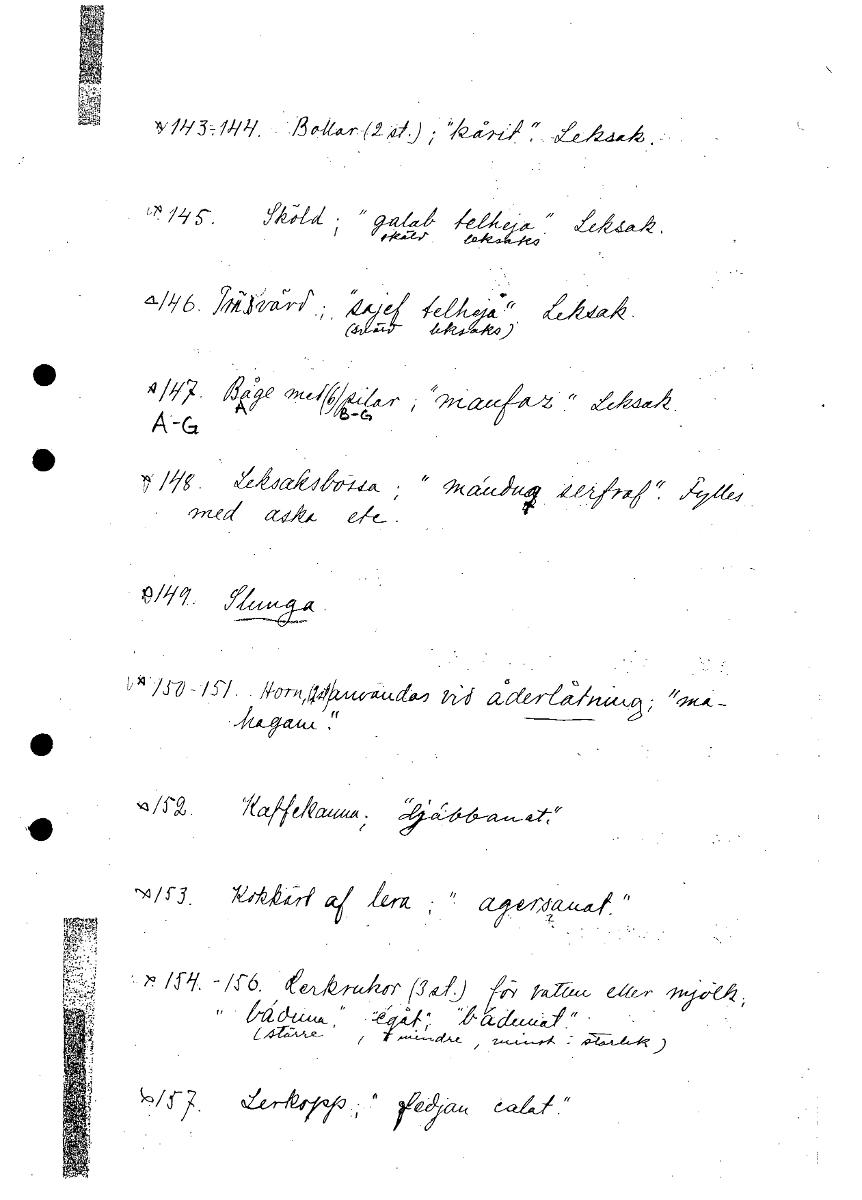 143-144. Bollar (2 st.); "kårit". Leksak.
145. Sköld; "galab telheja". Leksak.
sköld leksaks
146. Träsvärd; "sajef telheja" Leksak.
(svärd leksaks)
147. Båge med (6) pilar; "manfaz". Leksak.
A B-G
A-G
148. Leksaksbössa; " máuduq serfraf". Fylles
med aska etc.
149. Slunga.
150-151. Horn, (2 st) användas vid åderlåtning; "ma-
hagam".
152. Kaffekanna; "djábbanat."
153. Kokkärl af lera; " agersanat."
?
154.-156. Lerkrukor (3 st.) för vatten eller mjölk;
" báduna", "égåt"; "bádunat".
(större , mindre, minst i storlek)
157. Lerkopp; " fedjan calat."